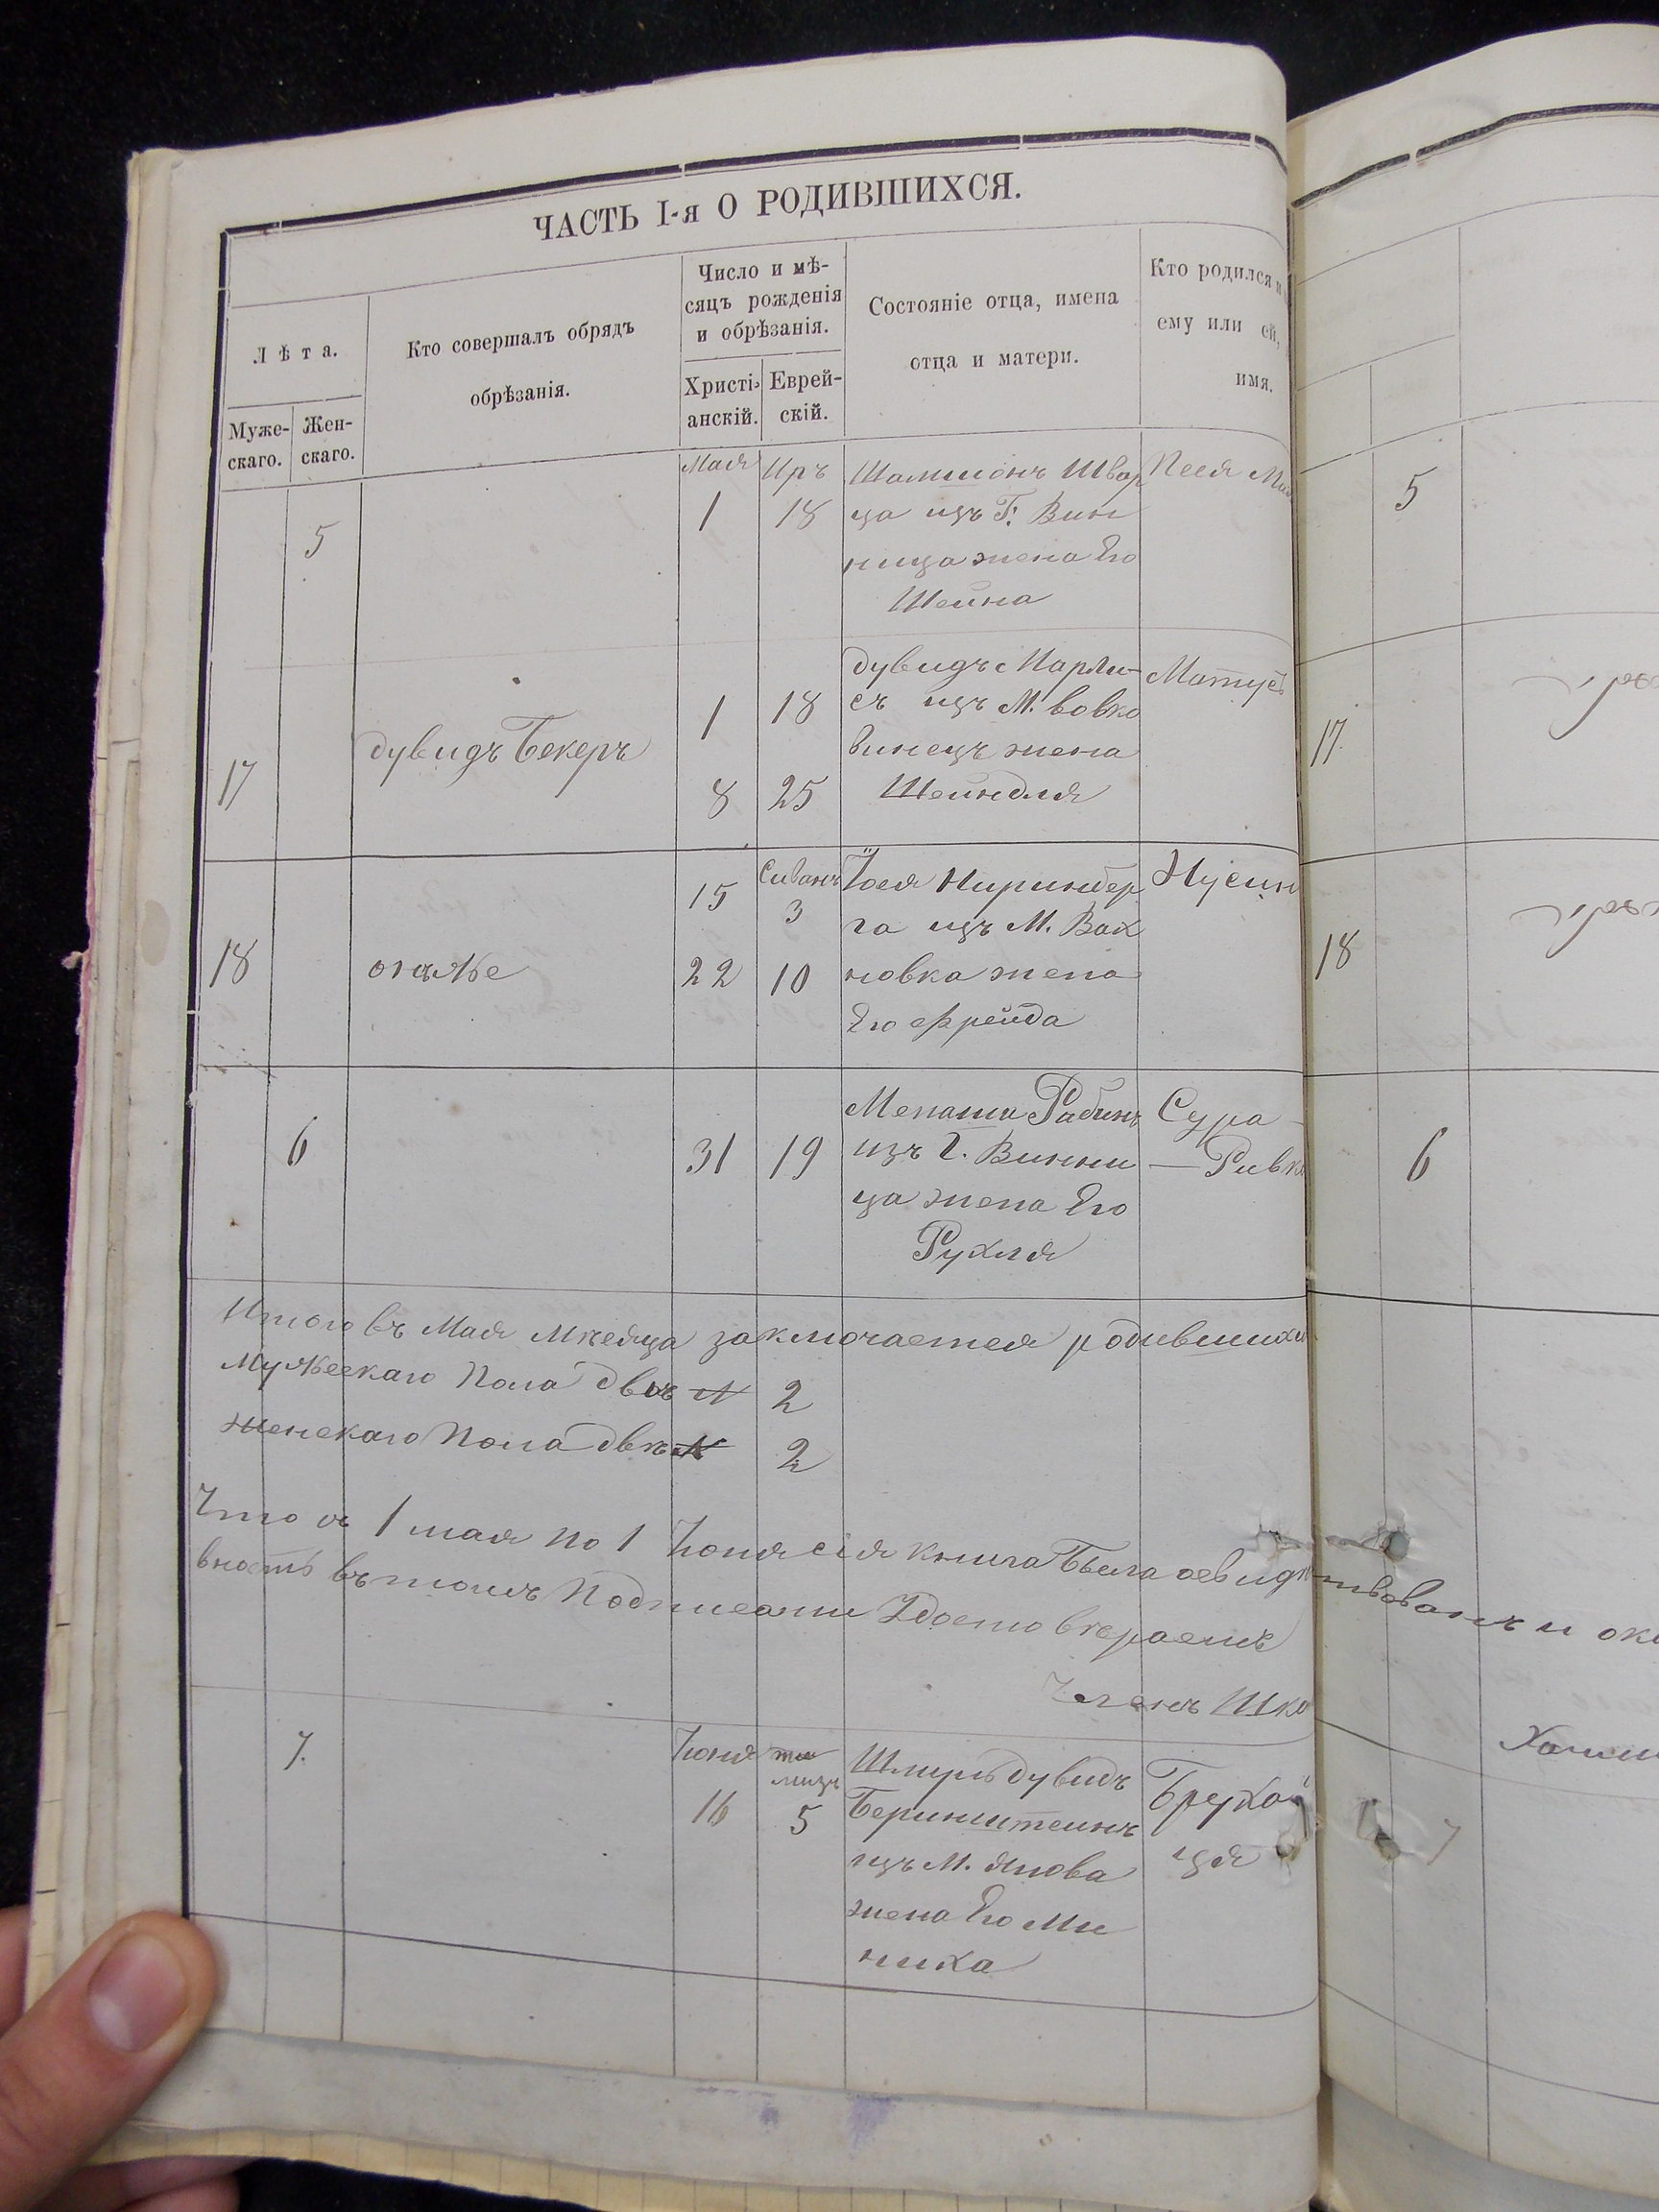 ЧАСТЬ I-я О РОДИВШИХСЯ.
Лѣта.
Муже-
скаго.
Жен-
скаго.
Кто совершалъ обрядъ
обрѣзанія.
Число и мѣ-
сяцъ рожденія
и обрѣзанія.
Христі-
анскій.
Еврей-
скій.
Состояніе отца, имена
отца и матери.
Кто родился и
ему или ей,
имя.
5
Мая
1
Иръ
18
Шамшонъ Швар
ца изъ Г. Вин
ница жена Его
Шейна
Песя
5
17
дувидъ Бекеръ
1
8
18
25
дувидъ
съ изъ М. вовко
винецъ жена
Шейндля
Матусъ
17
18
отъже
15
22
Сиванъ
3
10
Іося Ниринбер
га изъ М. Вах
новка жена
Его Фрейда
Нусин
18
6
31
19
Менаша Рабинъ
изъ Г. Винни
ца жена Его
Рухля
Сура
— Ривка
6
Итого въ Мая Мѣсяца заключается родившихся
Мужескаго Пола двохъ № 2
Женскаго Пола двѣ № 2
Что съ 1 мая по 1 Іюня сія книга Была освидѣтельствованъ и ока
вность въ томъ Подписами Удостовѣраемъ
Членъ Шко
7.
Іюня
16
5
Шмиръ дувидъ
Беринштеинъ
изъ М. Янова
жена Его Ми
ника
Брухо
ця
7